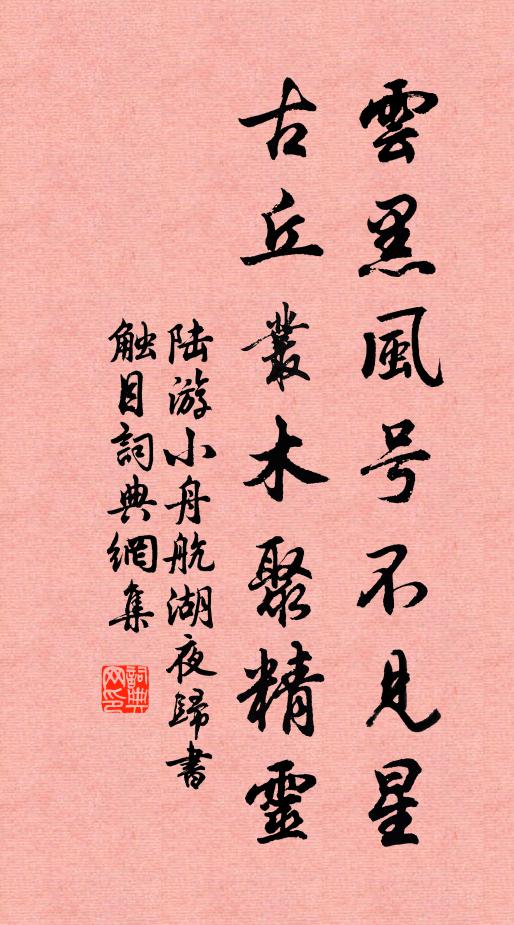 雲黑風号不見星
古丘叢木聚精靈
陆游小舟航湖夜歸書
触目詞典網集
詞典网印